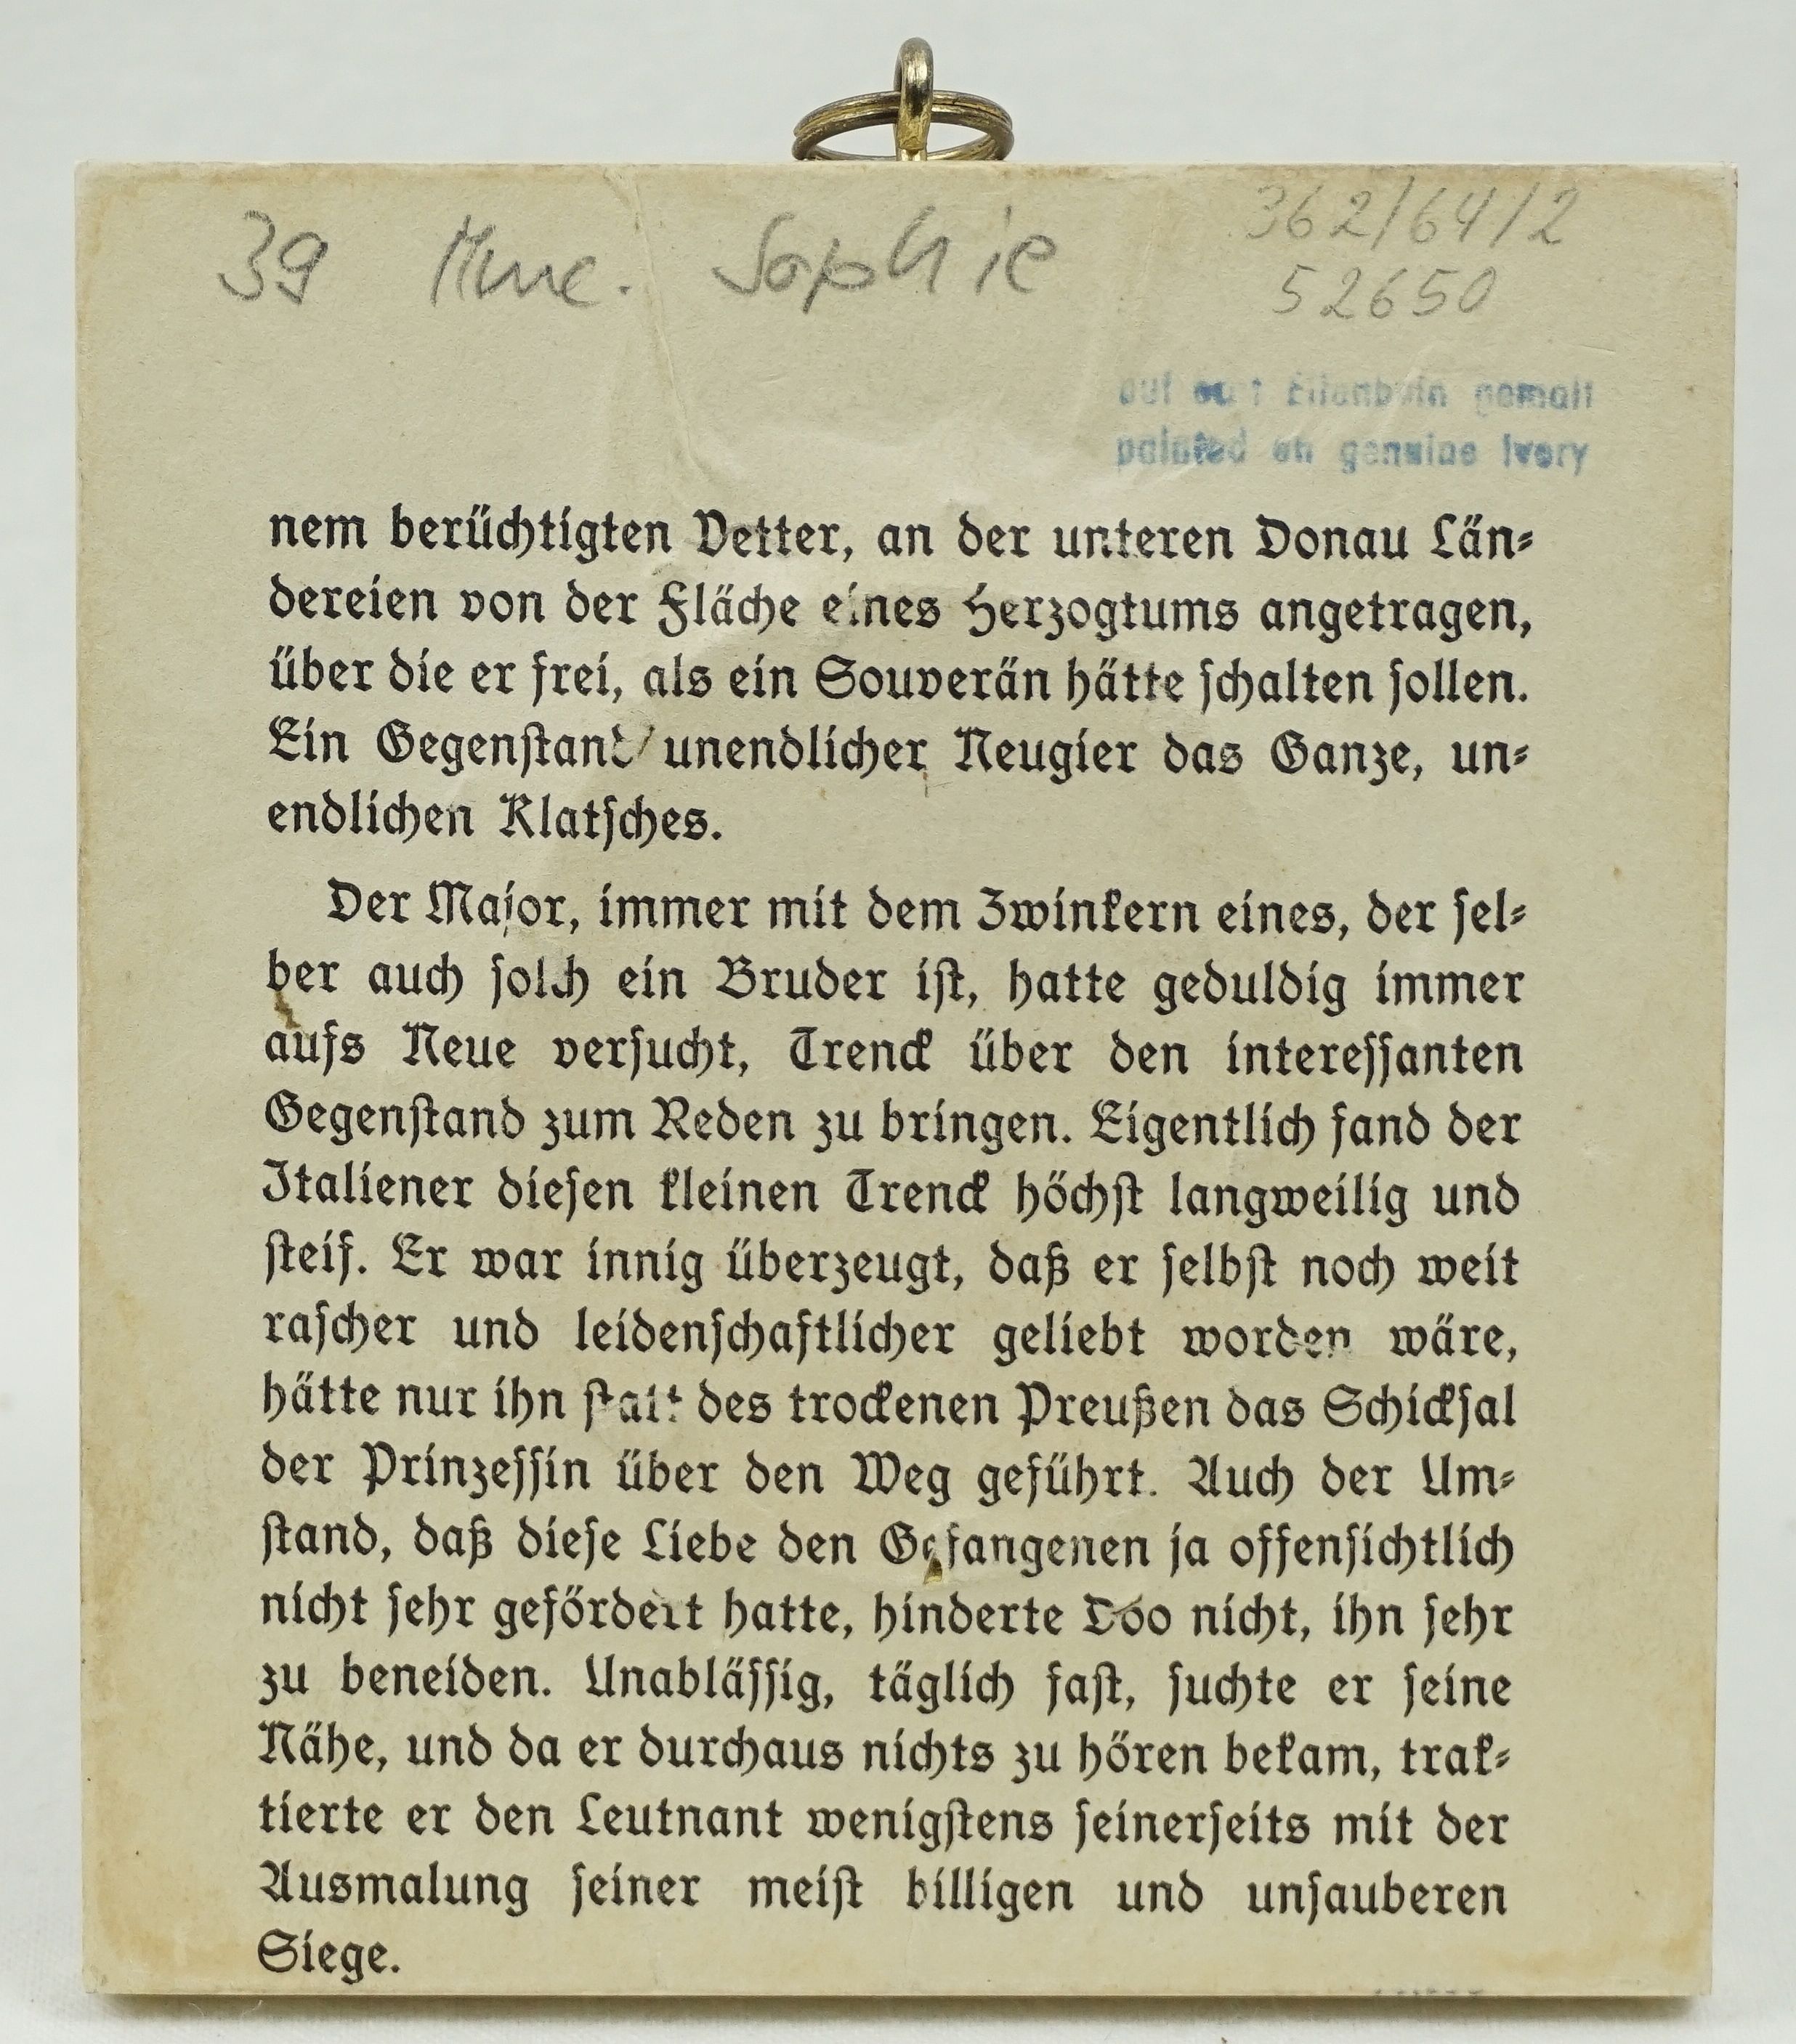 39 Mme. Sophie
362/64/2
52650
auf echt Elfenbein gemalt
painted on genuine Ivory
nem berüchtigten Vetter, an der unteren Donau Län-
dereien von der Fläche eines Herzogtums angetragen,
über die er frei, als ein Souverän hätte schalten sollen.
Ein Gegenstand unendlicher Neugier das Ganze, un-
endlichen Klatsches.
Der Major, immer mit dem Zwinkern eines, der sel-
ber auch solch ein Bruder ist, hatte geduldig immer
aufs Neue versucht, Trenck über den interessanten
Gegenstand zum Reden zu bringen. Eigentlich fand der
Italiener diesen kleinen Trenck höchst langweilig und
steif. Er war innig überzeugt, daß er selbst noch weit
rascher und leidenschaftlicher geliebt worden wäre,
hätte nur ihn statt des trockenen Preußen das Schicksal
der Prinzessin über den Weg geführt. Auch der Um-
stand, daß diese Liebe den Gefangenen ja offensichtlich
nicht sehr gefördert hatte, hinderte Doo nicht, ihn sehr
zu beneiden. Unablässig, täglich fast, suchte er seine
Nähe, und da er durchaus nichts zu hören bekam, trak-
tierte er den Leutnant wenigstens seinerseits mit der
Ausmalung seiner meist billigen und unsauberen
Siege.